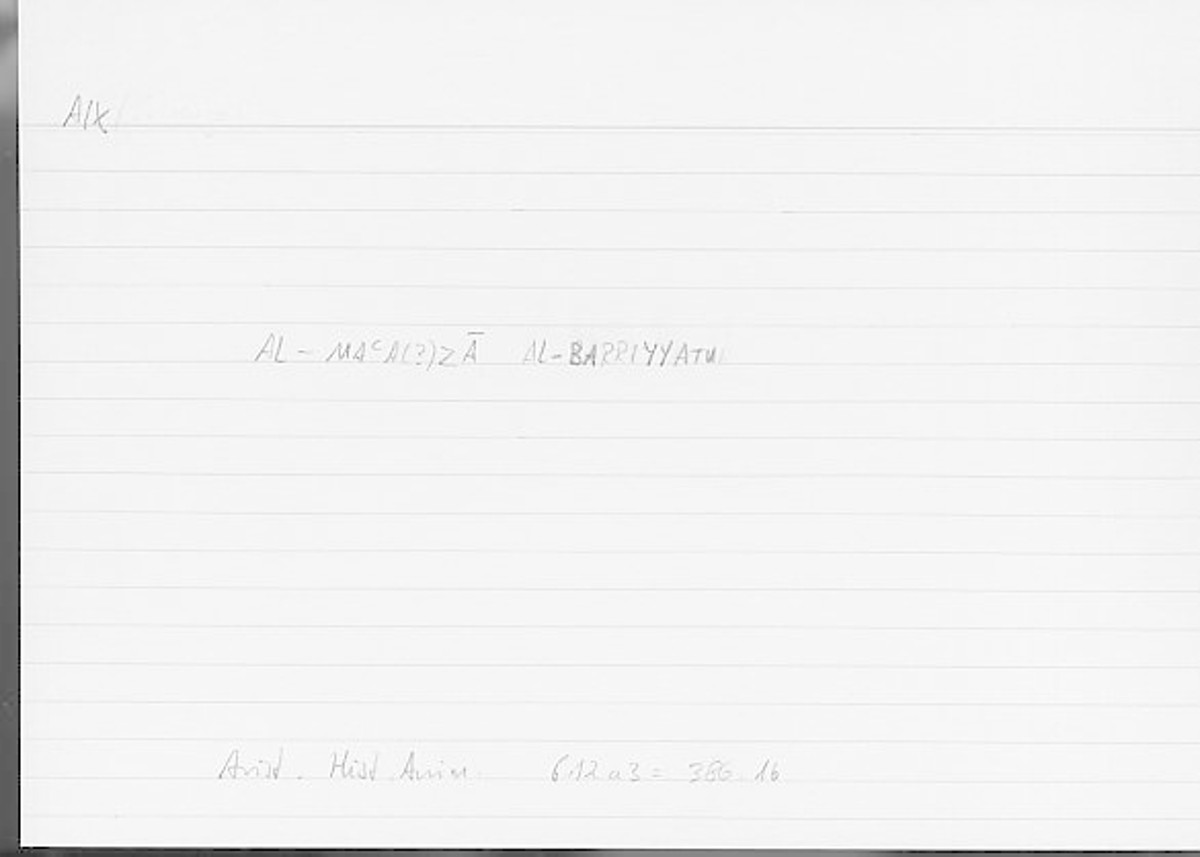 AIX
AL - MAᶜA(?)ZĀ AL-BARRIYYATU
Arist. Hist. Anim. 612 a3 = 386.16